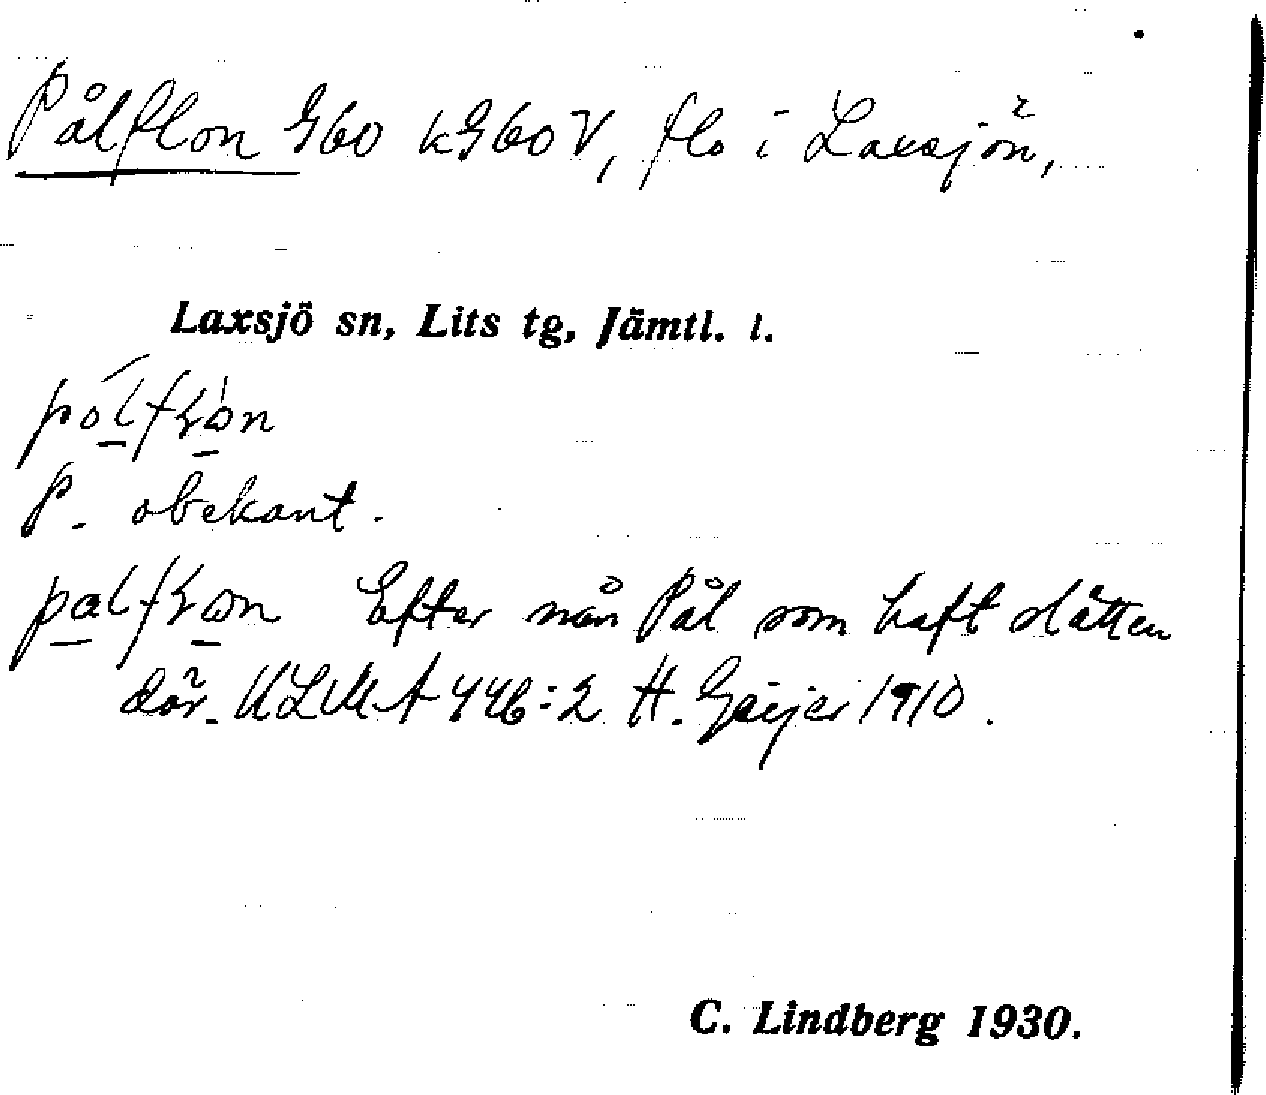 Pålflon G60 kG60V, flo i Laxsjön,
Laxsjö sn, Lits tg, Jämtl. l.
P. obekant.
Efter nån Pål som haft slåtten
där. ULMA 446:2 H. Geijer 1910.
C. Lindberg 1930.